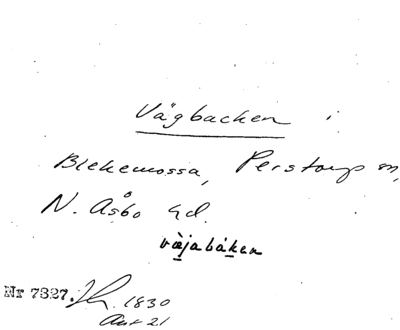 Vägbacken i
Blekemossa, Perstorp sn,
N. Åsbo hd.
väjabáken
Nr 7327. 1830